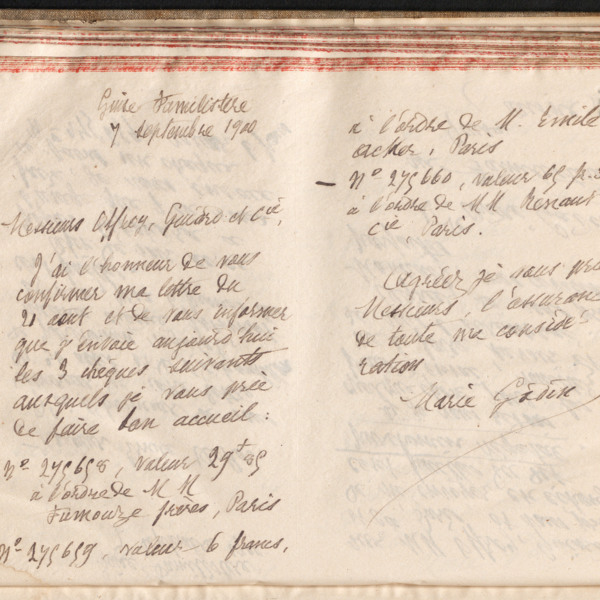 Guise Familistère
7 septembre 1900
Messieurs Offroy, Guiard et Cie,
J'ai l'honneur de vous
confirmer ma lettre du
21 aout et de vous informer
que j'envoie aujourd'hui
les 3 chèques suivants
auxquels je vous prie
de faire bon accueil :
N° 275658, valeur 29f 85
à l'ordre de M M
Fumouze frères, Paris
N° 275659, valeur 6 francs,
à l'ordre de M. Emile
Paris
— N° 275660, valeur 65 fr.
à l'ordre de MM Renault
Cie, Paris.
Agréez je vous prie
Messieurs, l'assurance
de toute ma considé-
ration
Marie Godin